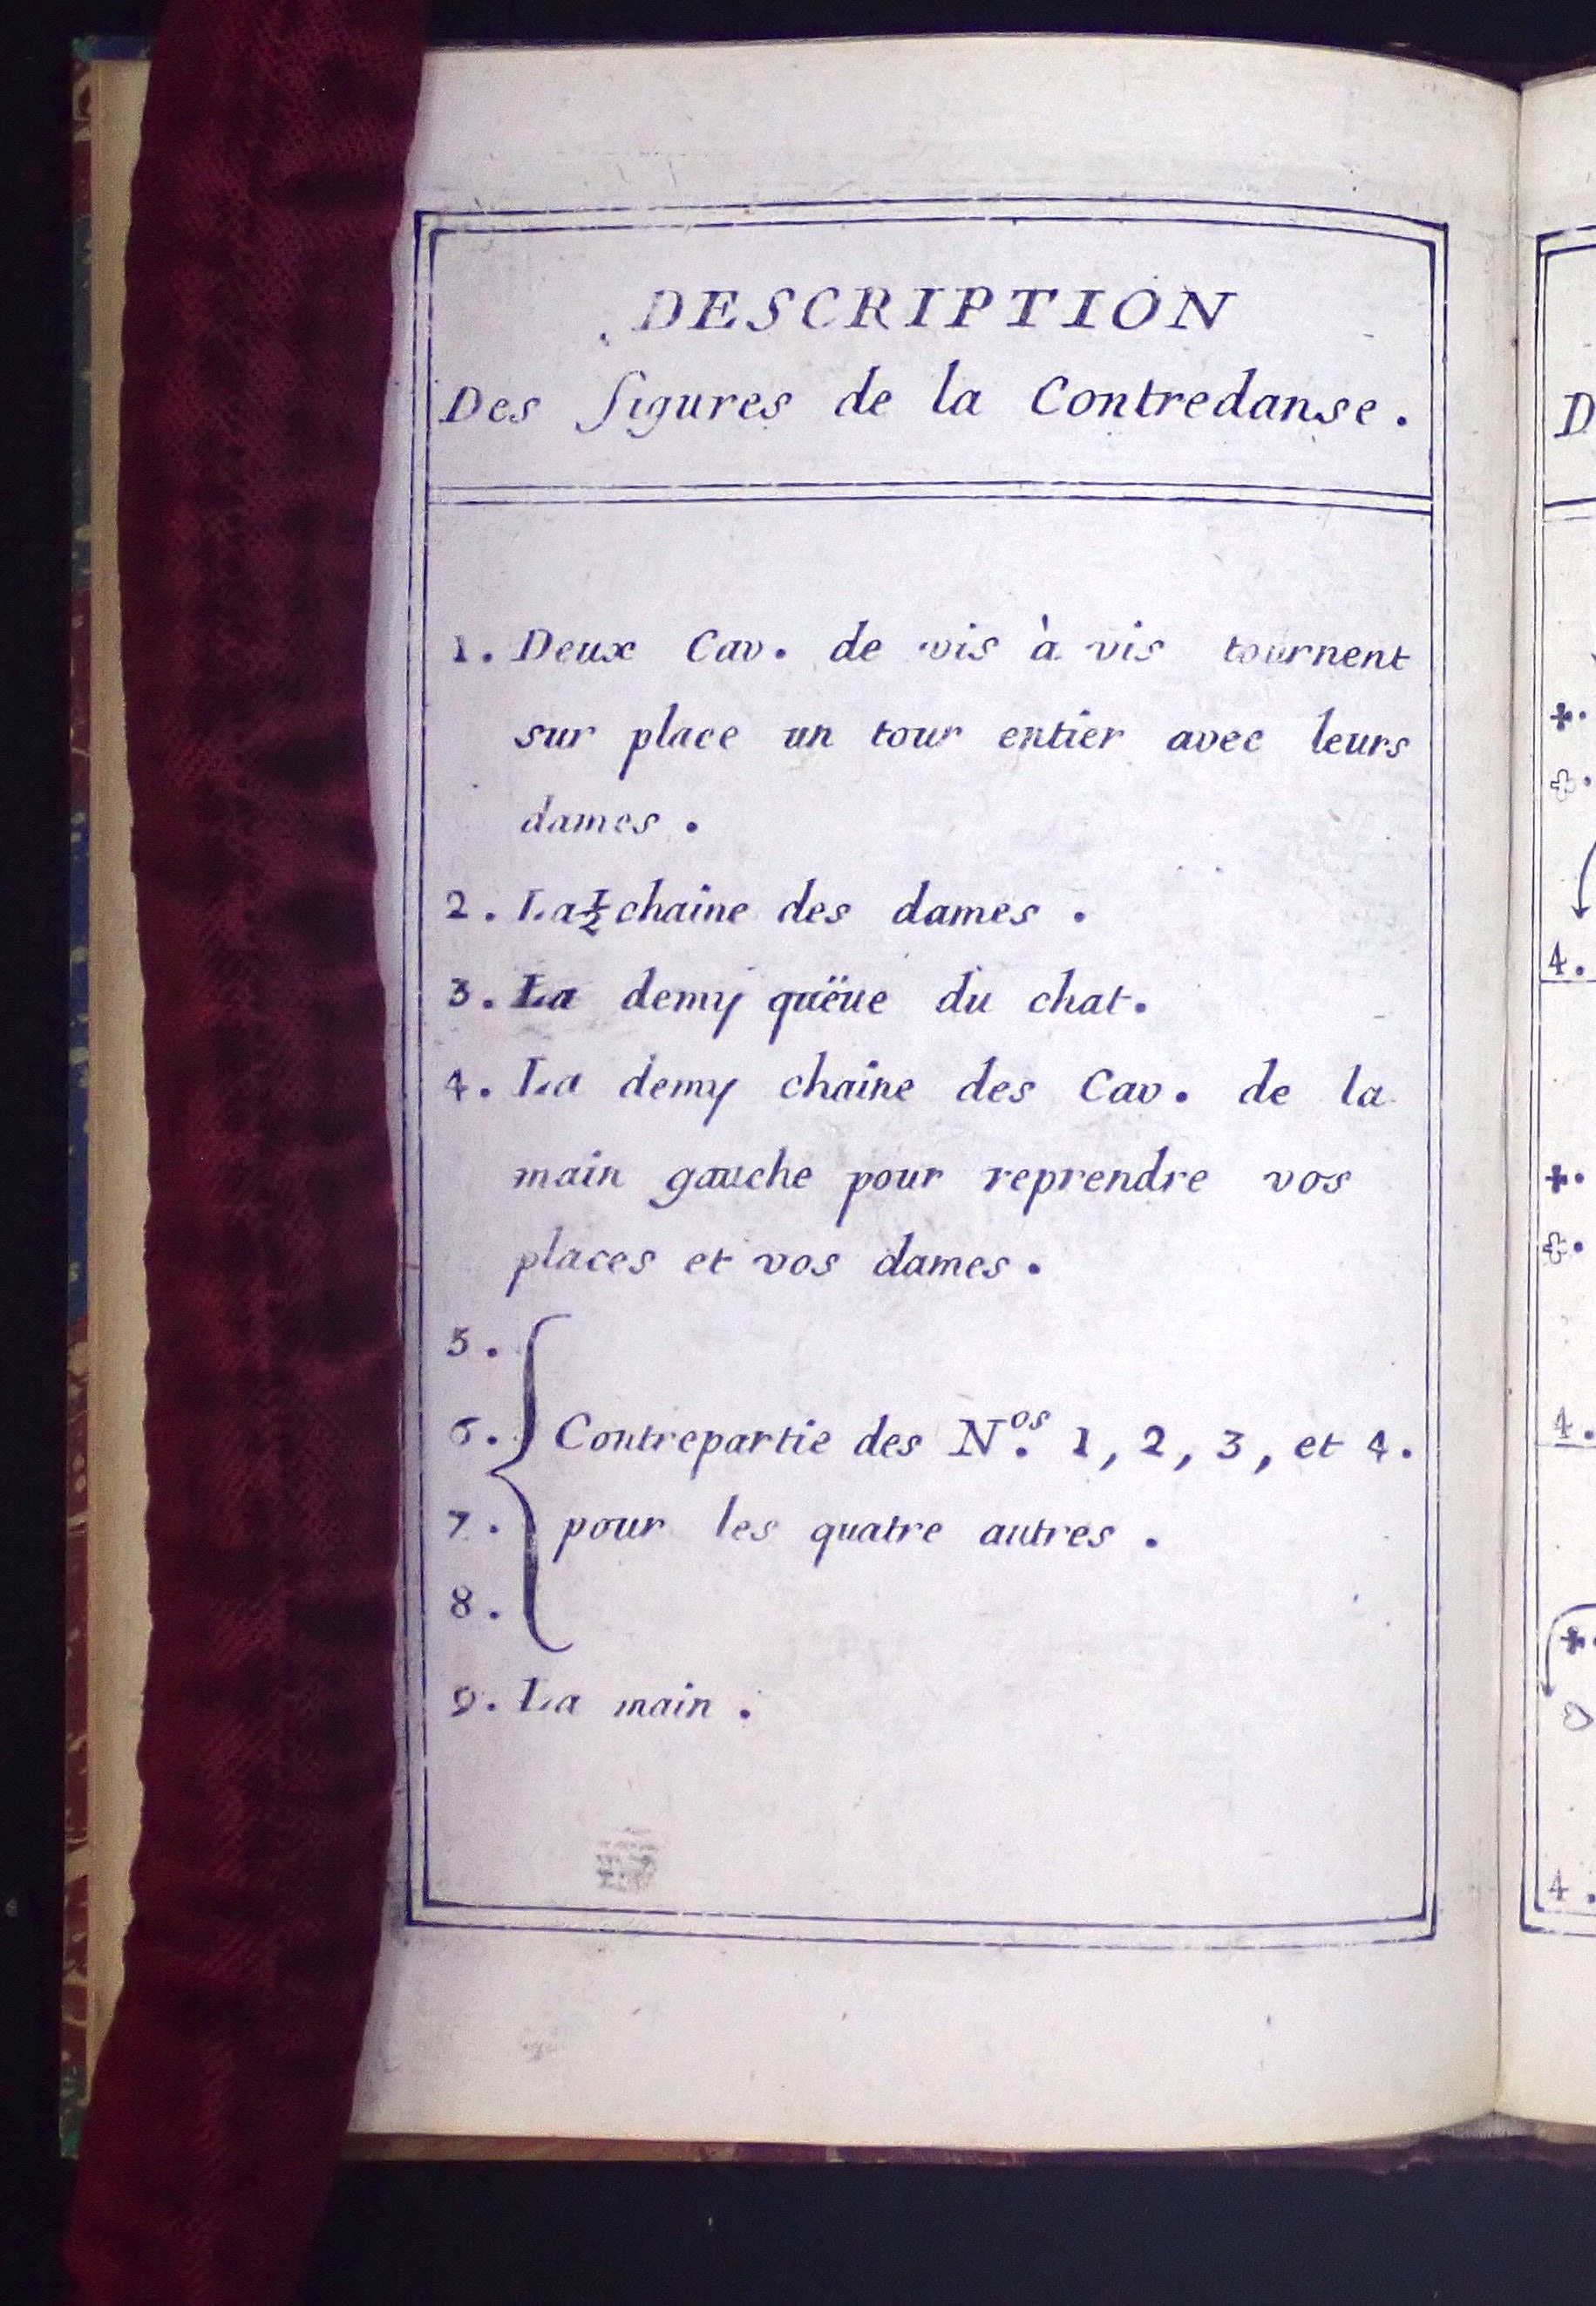 DESCRIPTION
Des figures de la Contredanse.
1. Deux Cav. de vis à vis tournent
sur place un tour entier avec leurs
dames.
2. La ½ chaine des dames.
3. La demy quëue du chat.
4. La demy chaine des Cav. de la
main gauche pour reprendre vos
places et vos dames.
5.
6. Contrepartie des N.os 1, 2, 3, et 4.
7. pour les quatre autres.
8.
9. La main.
D
4.
4.
4.